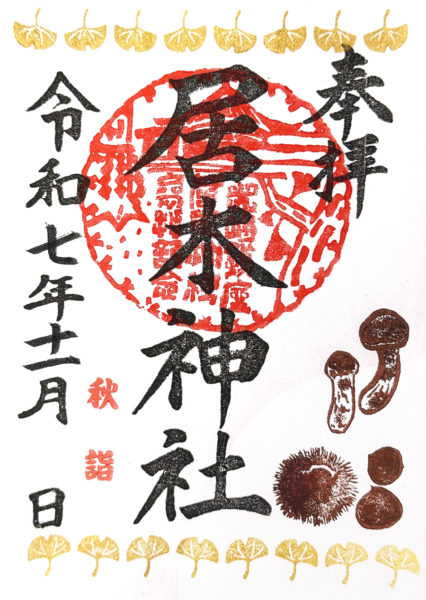 奉拝
居木神社
秋詣
令和七年十一月 日